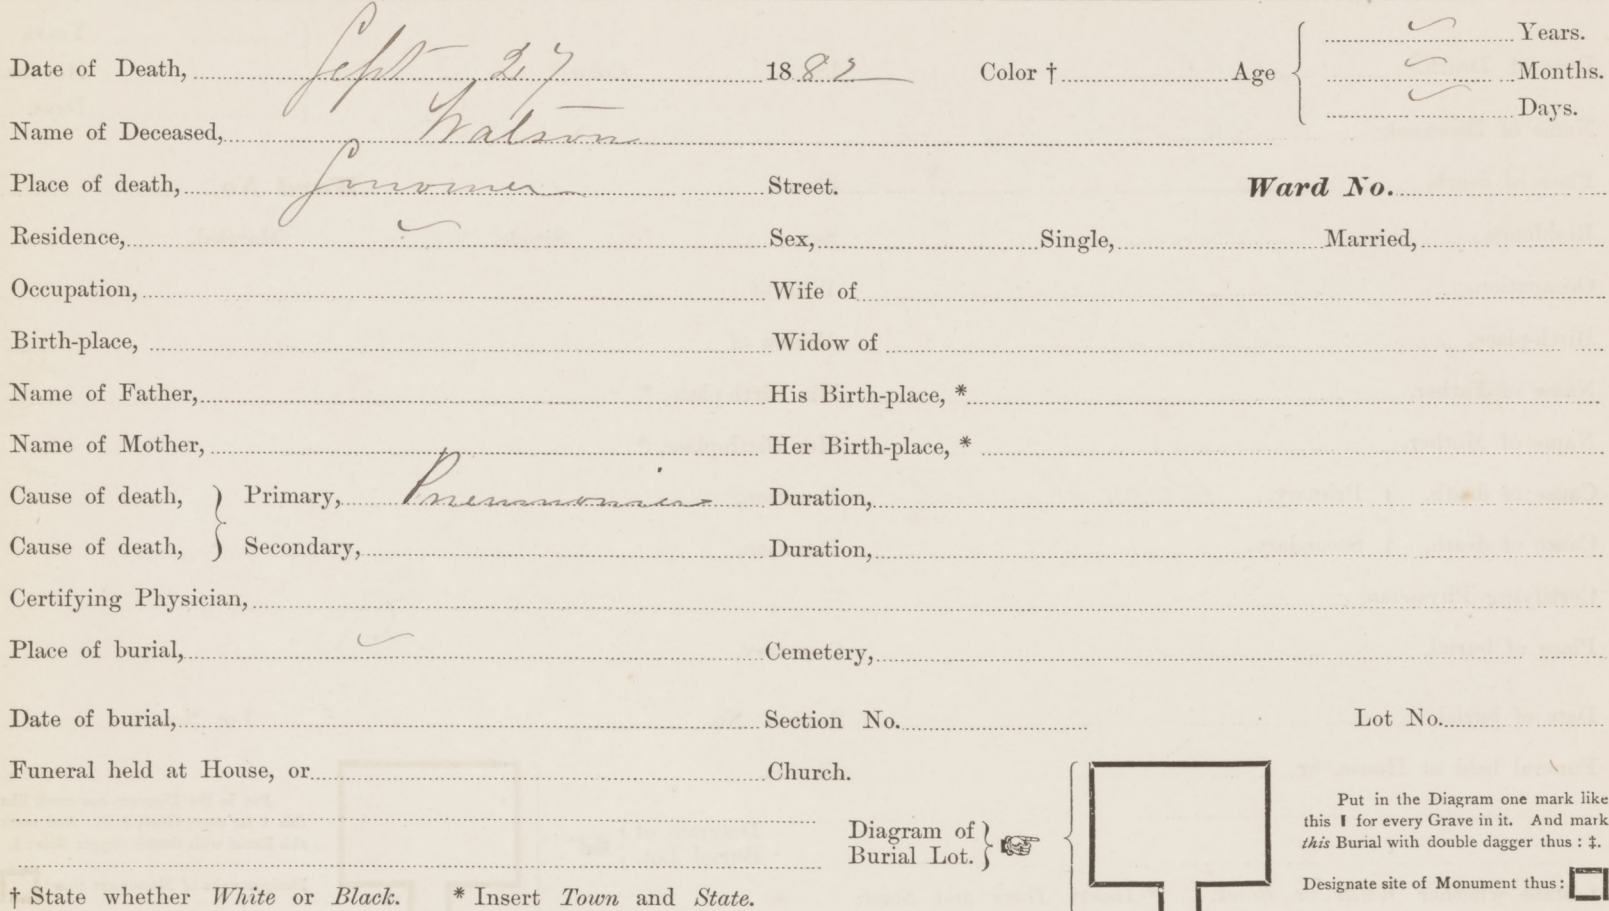 Date of Death, Sept 27 1882 Color † Age Years.
Months.
Days.
Name of Deceased, Watson
Place of death, Street. Ward No.
Residence, Sex, Single, Married,
Occupation, Wife of
Birth-place, Widow of
Name of Father, His Birth-place, *
Name of Mother, Her Birth-place, *
Cause of death, Primary, Pneumonia Duration,
Cause of death, Secondary, Duration,
Certifying Physician,
Place of burial, Cemetery,
Date of burial, Section No. Lot No.
Funeral held at House, or Church.
Diagram of
Burial Lot.
Put in the Diagram one mark like
this I for every Grave in it. And mark
this Burial with double dagger thus : ‡.
Designate site of Monument thus :
† State whether White or Black. * Insert Town and State.